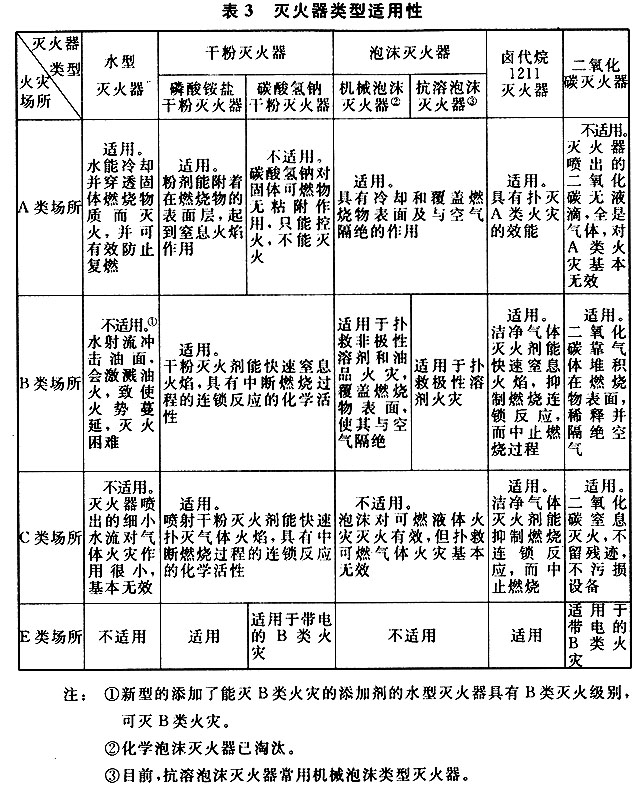 表3 灭火器类型适用性
灭火器
类型
火灾
场所
水型
灭火器
干粉灭火器
泡沫灭火器
卤代烷
1211
灭火器
二氧化
碳灭火器
磷酸铵盐
干粉灭火器
碳酸氢钠
干粉灭火器
机械泡沫
灭火器②
抗溶泡沫
灭火器③
A类场所
适用。
水能冷却
并穿透固
体燃烧物
质而灭
火，并可
有效防止
复燃
适用。
粉剂能附着
在燃烧物的
表面层，起
到窒息火焰
作用
不适用。
碳酸氢钠对
固体可燃物
无粘附作
用，只能控
火，不能灭
火
适用。
具有冷却和覆盖燃
烧物表面及与空气
隔绝的作用
适用。
具有扑灭
A类火灾
的效能
不适用。
灭火器
喷出的
二氧化
碳无液
滴，全是
气体，对
A类火
灾基本
无效
B类场所
不适用。①
水射流冲
击油面，
会激溅油
火，致使
火势蔓
延，灭火
困难
适用。
干粉灭火剂能快速窒息
火焰，具有中断燃烧过
程的连锁反应的化学活
性
适用于扑
救非极性
溶剂和油
品火灾，
覆盖燃烧
物表面，
使其与空
气隔绝
适用于扑
救极性溶
剂火灾
适用。
洁净气体
灭火剂能
快速窒息
火焰，抑
制燃烧连
锁反应，
而中止燃
烧过程
适用。
二氧化
碳靠气
体堆积
在燃烧
物表面，
稀释并
隔绝空
气
C类场所
不适用。
灭火器喷
出的细小
水流对气
体火灾作
用很小，
基本无效
适用。
喷射干粉灭火剂能快速
扑灭气体火焰，具有中
断燃烧过程的连锁反应
的化学活性
不适用。
泡沫对可燃液体火
灾灭火有效，但扑救
可燃气体火灾基本
无效
适用。
洁净气体
灭火剂能
抑制燃烧
连锁反
应，而中
止燃烧
适用。
二氧化
碳窒息
灭火，不
留残迹，
不污损
设备
E类场所
不适用
适用
适用于带电
的B类火
灾
不适用
适用
适用于
带电的
B类火
灾
注：①新型的添加了能灭B类火灾的添加剂的水型灭火器具有B类灭火级别，
可灭B类火灾。
②化学泡沫灭火器已淘汰。
③目前，抗溶泡沫灭火器常用机械泡沫类型灭火器。